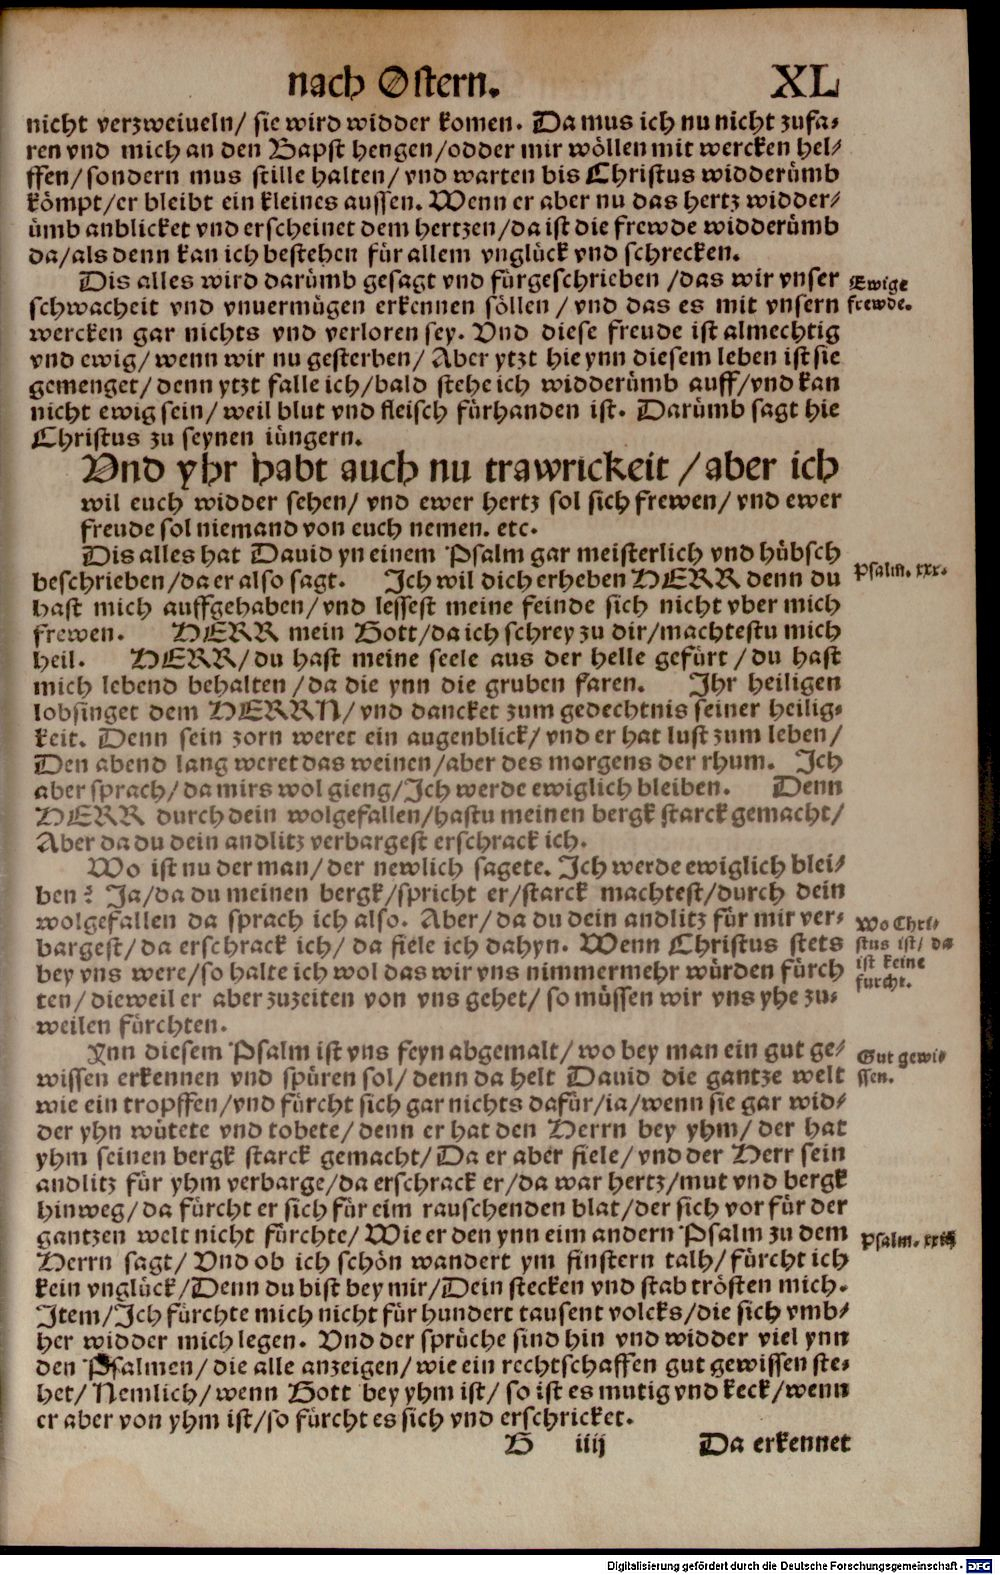 nach Ostern. XL
nicht verzweiueln/ sie wird widder komen. Da mus ich nu nicht zufa-
ren vnd mich an den Bapst hengen/odder mir wöllen mit wercken hel-
ffen/sondern mus stille halten/ vnd warten bis Christus widderümb
kömpt/er bleibt ein kleines aussen. Wenn er aber nu das hertz widder-
ümb anblicket vnd erscheinet dem hertzen/da ist die frewde widderümb
da/als denn kan ich bestehen für allem vnglück vnd schrecken.
Dis alles wird darümb gesagt vnd fürgeschrieben /das wir vnser
schwacheit vnd vnuermügen erkennen söllen / vnd das es mit vnsern
wercken gar nichts vnd verloren sey. Vnd diese freude ist almechtig
vnd ewig/ wenn wir nu gesterben/ Aber ytzt hie ynn diesem leben ist sie
gemenget/ denn ytzt falle ich/bald stehe ich widderümb auff/vnd kan
nicht ewig sein/ weil blut vnd fleisch fürhanden ist. Darümb sagt hie
Christus zu seynen iüngern.
Ewige
frewde.
Vnd yhr habt auch nu trawrickeit /aber ich
wil euch widder sehen/ vnd ewer hertz sol sich frewen/ vnd ewer
freude sol niemand von euch nemen. etc.
Dis alles hat Dauid yn einem Psalm gar meisterlich vnd hübsch
beschrieben/da er also sagt. Ich wil dich erheben HERR denn du
hast mich auffgehaben/ vnd lessest meine feinde sich nicht vber mich
frewen. HERR mein Gott/da ich schrey zu dir/machtestu mich
heil. HERR/du hast meine seele aus der helle gefürt /du hast
mich lebend behalten /da die ynn die gruben faren. Ihr heiligen
lobsinget dem HERRN/ vnd dancket zum gedechtnis seiner heilig-
keit. Denn sein zorn weret ein augenblick/ vnd er hat lust zum leben/
Den abend lang weret das weinen/aber des morgens der rhum. Ich
aber sprach/ da mirs wol gieng/Ich werde ewiglich bleiben. Denn
HERR durch dein wolgefallen/hastu meinen bergk starck gemacht/
Aber da du dein andlitz verbargest erschrack ich.
Psalm. xxx.
Wo ist nu der man/ der newlich sagete. Ich werde ewiglich blei-
ben? Ja/da du meinen bergk/spricht er/starck machtest/durch dein
wolgefallen da sprach ich also. Aber/ da du dein andlitz für mir ver-
bargest/ da erschrack ich/ da fiele ich dahyn. Wenn Christus stets
bey vns were/so halte ich wol das wir vns nimmermehr würden fürch
ten/ dieweil er aber zuzeiten von vns gehet/ so müssen wir vns yhe zu-
weilen fürchten.
Wo Chri-
stus ist/ da
ist keine
furcht.
Ynn diesem Psalm ist vns feyn abgemalt/ wo bey man ein gut ge-
wissen erkennen vnd spüren sol/ denn da helt Dauid die gantze welt
wie ein tropffen/vnd fürcht sich gar nichts dafür/ia/wenn sie gar wid-
der yhn wütete vnd tobete/ denn er hat den Herrn bey yhm/ der hat
yhm seinen bergk starck gemacht/ Da er aber fiele/ vnd der Herr sein
andlitz für yhm verbarge/da erschrack er/da war hertz/mut vnd bergk
hinweg/ da fürcht er sich für eim rauschenden blat/der sich vor für der
gantzen welt nicht fürchte/ Wie er den ynn eim andern Psalm zu dem
Herrn sagt/ Vnd ob ich schön wandert ym finstern talh/ fürcht ich
kein vnglück/Denn du bist bey mir/Dein stecken vnd stab trösten mich.
Item/Ich fürchte mich nicht für hundert tausent volcks/die sich vmb-
her widder mich legen. Vnd der sprüche sind hin vnd widder viel ynn
den Psalmen/ die alle anzeigen/ wie ein rechtschaffen gut gewissen ste-
het/ Nemlich/ wenn Gott bey yhm ist/ so ist es mutig vnd keck/wenn
er aber von yhm ist/so fürcht es sich vnd erschricket.
Gut gewi-
ssen.
Psalm. xxiij
H iiij Da erkennet
Digitalisierung gefördert durch die Deutsche Forschungsgemeinschaft - DFG